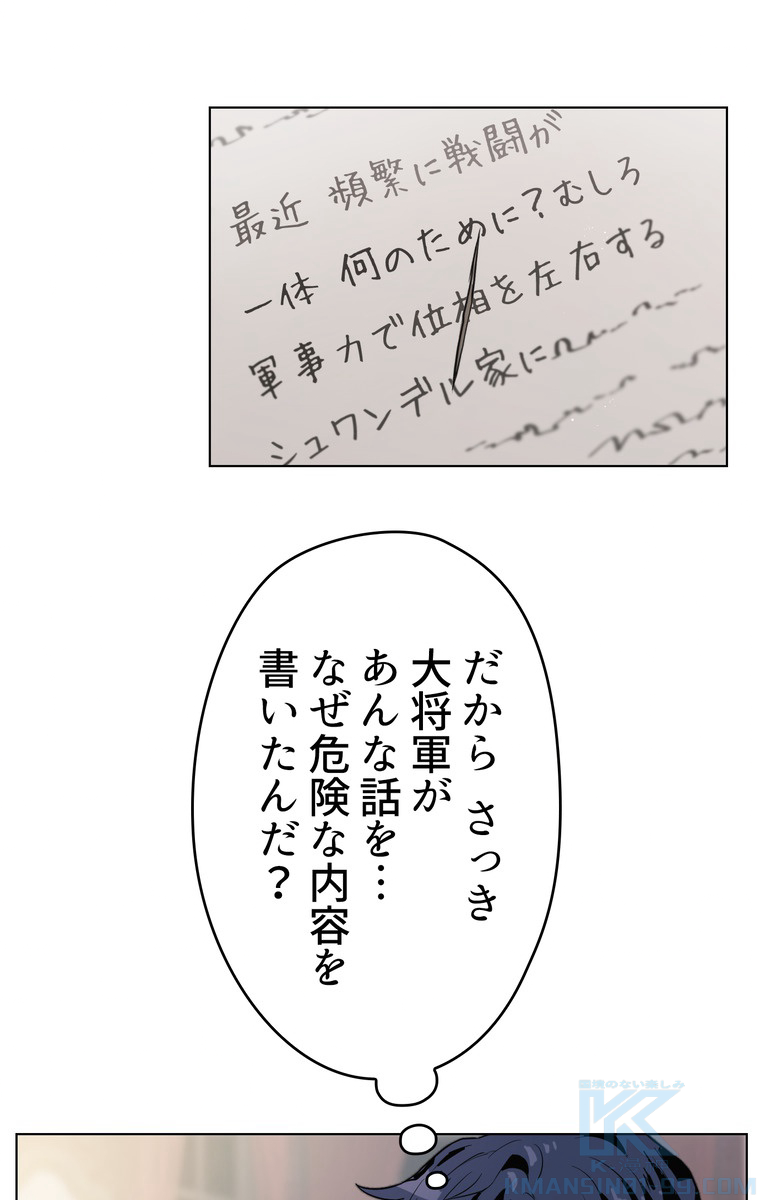 最近 頻繁に戦闘が
一体 何のために?むしろ
軍事力で位相を左右する
シュワンデル家に
だから さっき
大将軍が
あんな話を…
なぜ危険な内容を
書いたんだ?
国境のない楽しみ
K
KMANSIN31-99.COM